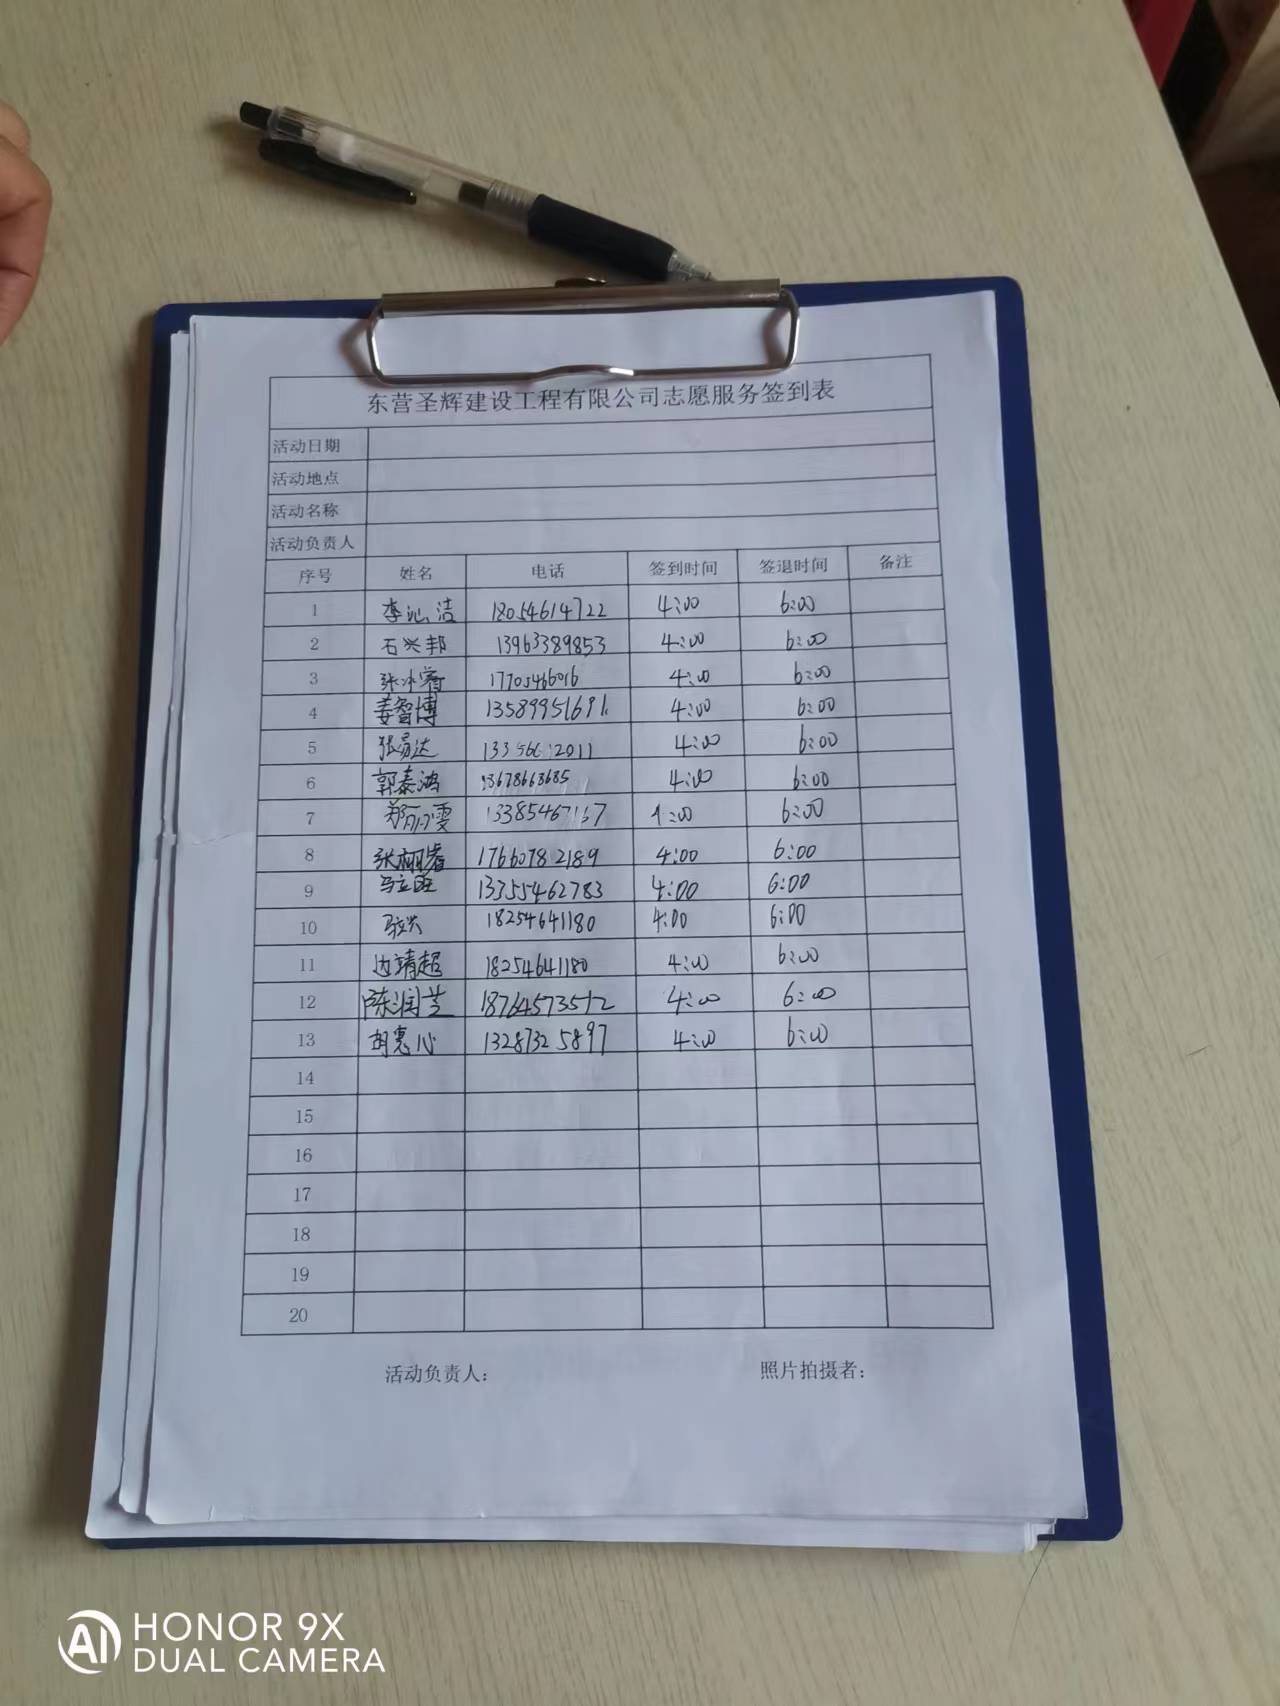 东营圣辉建设工程有限公司志愿服务签到表
活动日期
活动地点
活动名称
活动负责人
序号 姓名 电话 签到时间 签退时间 备注
1 李沁洁 18054614722 4:00 6:00
2 石兴邦 13963389853 4:00 6:00
3 张冰睿 17705466016 4:00 6:00
4 姜智博 13589951691 4:00 6:00
5 张易达 4:00 6:00
6 郭泰鸿 13678663685 4:00 6:00
7 郑 雯 4:00 6:00
8 张栩睿 17660782189 4:00 6:00
9 马立 13355462783 4:00 6:00
10 18254641180 4:00 6:00
11 边靖超 18254641180 4:00 6:00
12 陈润芝 18764573512 4:00 6:00
13 胡惠心 13287325897 4:00 6:00
14
15
16
17
18
19
20
活动负责人： 照片拍摄者：
AI HONOR 9X
DUAL CAMERA